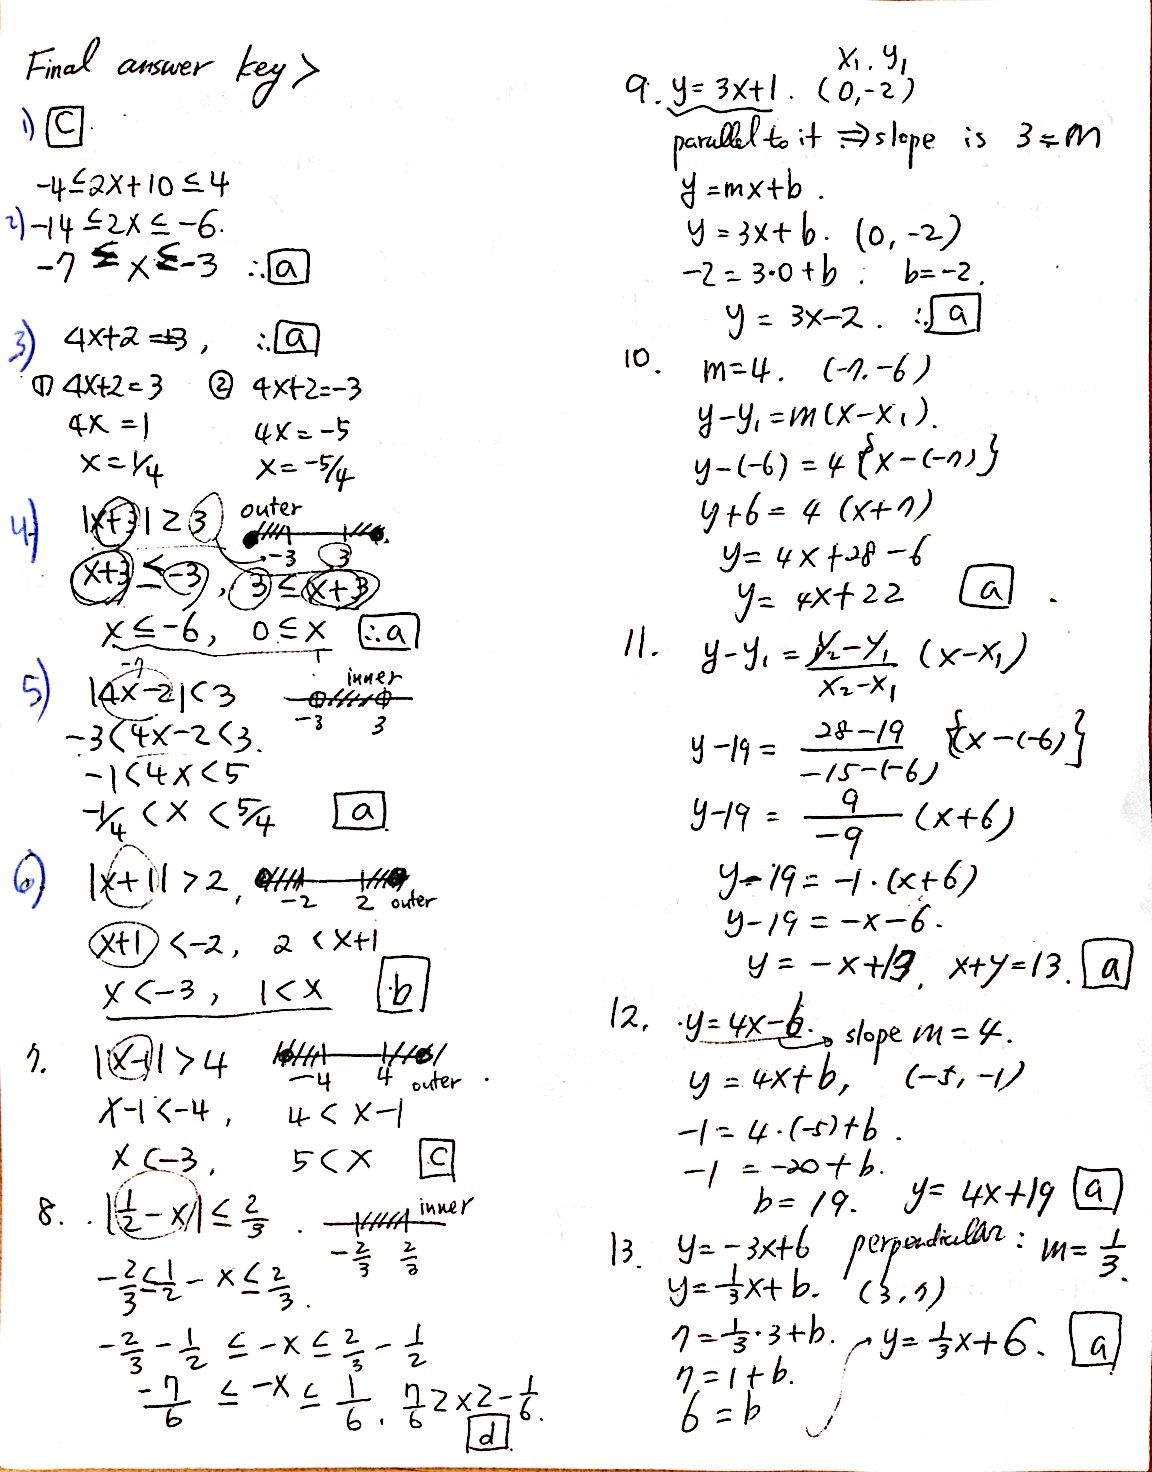 Final answer key>
1) C.
-4≤2x+10≤4
2) -14≤2x≤-6.
-7≤x≤-3 ∴a
3) 4x+2=±3, ∴a
① 4x+2=3 ② 4x+2=-3
4x=1 4x=-5
x=1/4 x=-5/4
4) |x+3|≥3 outer
-3 3
x+3≤-3, 3≤x+3
x≤-6, 0≤x ∴a
5) |4x-2|<3 inner
-3 3
-3<4x-2<3.
-1<4x<5
-1/4<x<5/4 a
6) |x+1|>2, -2 2 outer
x+1<-2, 2<x+1
x<-3, 1<x b
7. |x-1|>4 -4 4 outer.
x-1<-4, 4<x-1
x<-3, 5<x C
8. |1/2-x|≤2/3. inner
-2/3 2/3
-2/3≤1/2-x≤2/3.
-2/3-1/2≤-x≤2/3-1/2
-7/6≤-x≤1/6, 7/6≥x≥-1/6.
d
x1, y1
9. y=3x+1. (0,-2)
parallel to it ⇒ slope is 3=m
y=mx+b.
y=3x+b. (0,-2)
-2=3·0+b : b=-2.
y=3x-2. ∴a
10. m=4. (-7,-6)
y-y1=m(x-x1).
y-(-6)=4{x-(-7)}
y+6=4(x+7)
y=4x+28-6
y=4x+22 a.
11. y-y1=y2-y1/x2-x1 (x-x1)
y-19=28-19/-15-(-6) {x-(-6)}
y-19=9/-9 (x+6)
y-19=-1·(x+6)
y-19=-x-6.
y=-x+13, x+y=13. a
12. y=4x-6. slope m=4.
y=4x+b, (-5,-1)
-1=4·(-5)+b.
-1=-20+b.
b=19. y=4x+19 a
13. y=-3x+6 perpendicular: m=1/3.
y=1/3x+b. (3,7)
7=1/3·3+b. y=1/3x+6. a
7=1+b.
6=b